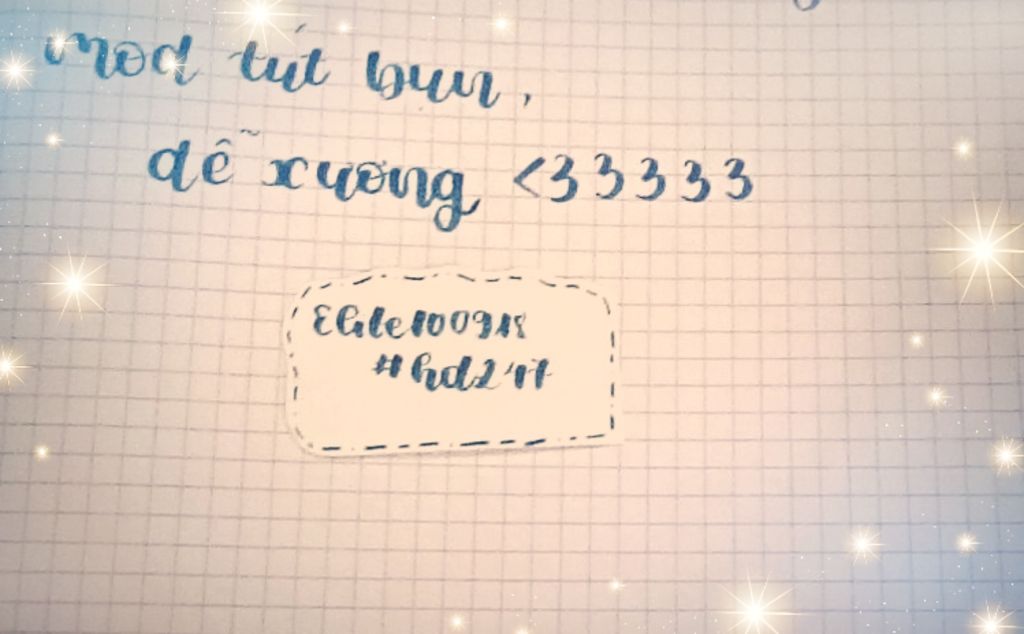 mod tút bun,
dễ xương <33333
Elile100918
#hd247